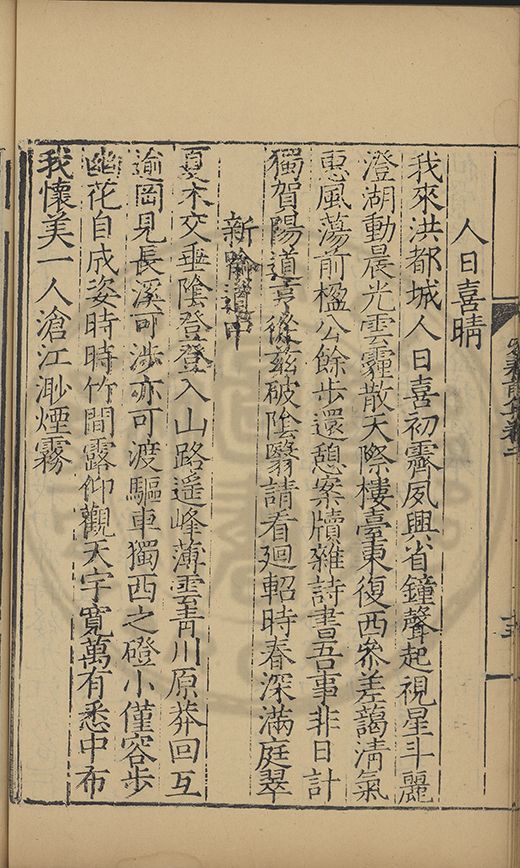 人日喜晴
我來洪都城人日喜初霽夙興省鐘聲起視星斗麗
澄湖動晨光雲霾散天際樓臺東復西參差藹淸氣
惠風蕩前楹公餘步還憩案牘雜詩書吾事非日計
獨賀陽道亨從玆破陰翳請看廻軺時春深滿庭翠
新喩道中
夏木交垂陰登登入山路遥峰薄雲靑川原莽回互
逾岡見長溪可涉亦可渡驅車獨西之磴小僅容步
幽花自成姿時時竹間露仰觀天宇寬萬有悉中布
我懷美一人滄江渺煙霧